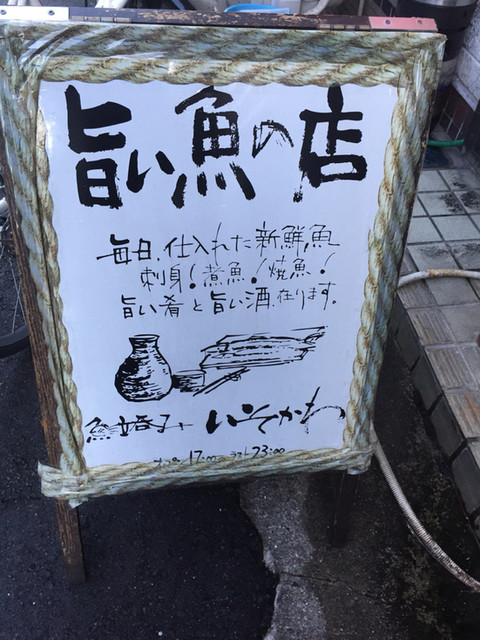 旨い魚の店
毎日、仕入れた新鮮魚
刺身!煮魚!焼魚!
旨い肴と旨い酒、在ります。
いそかわ
17:00 ラスト23:00